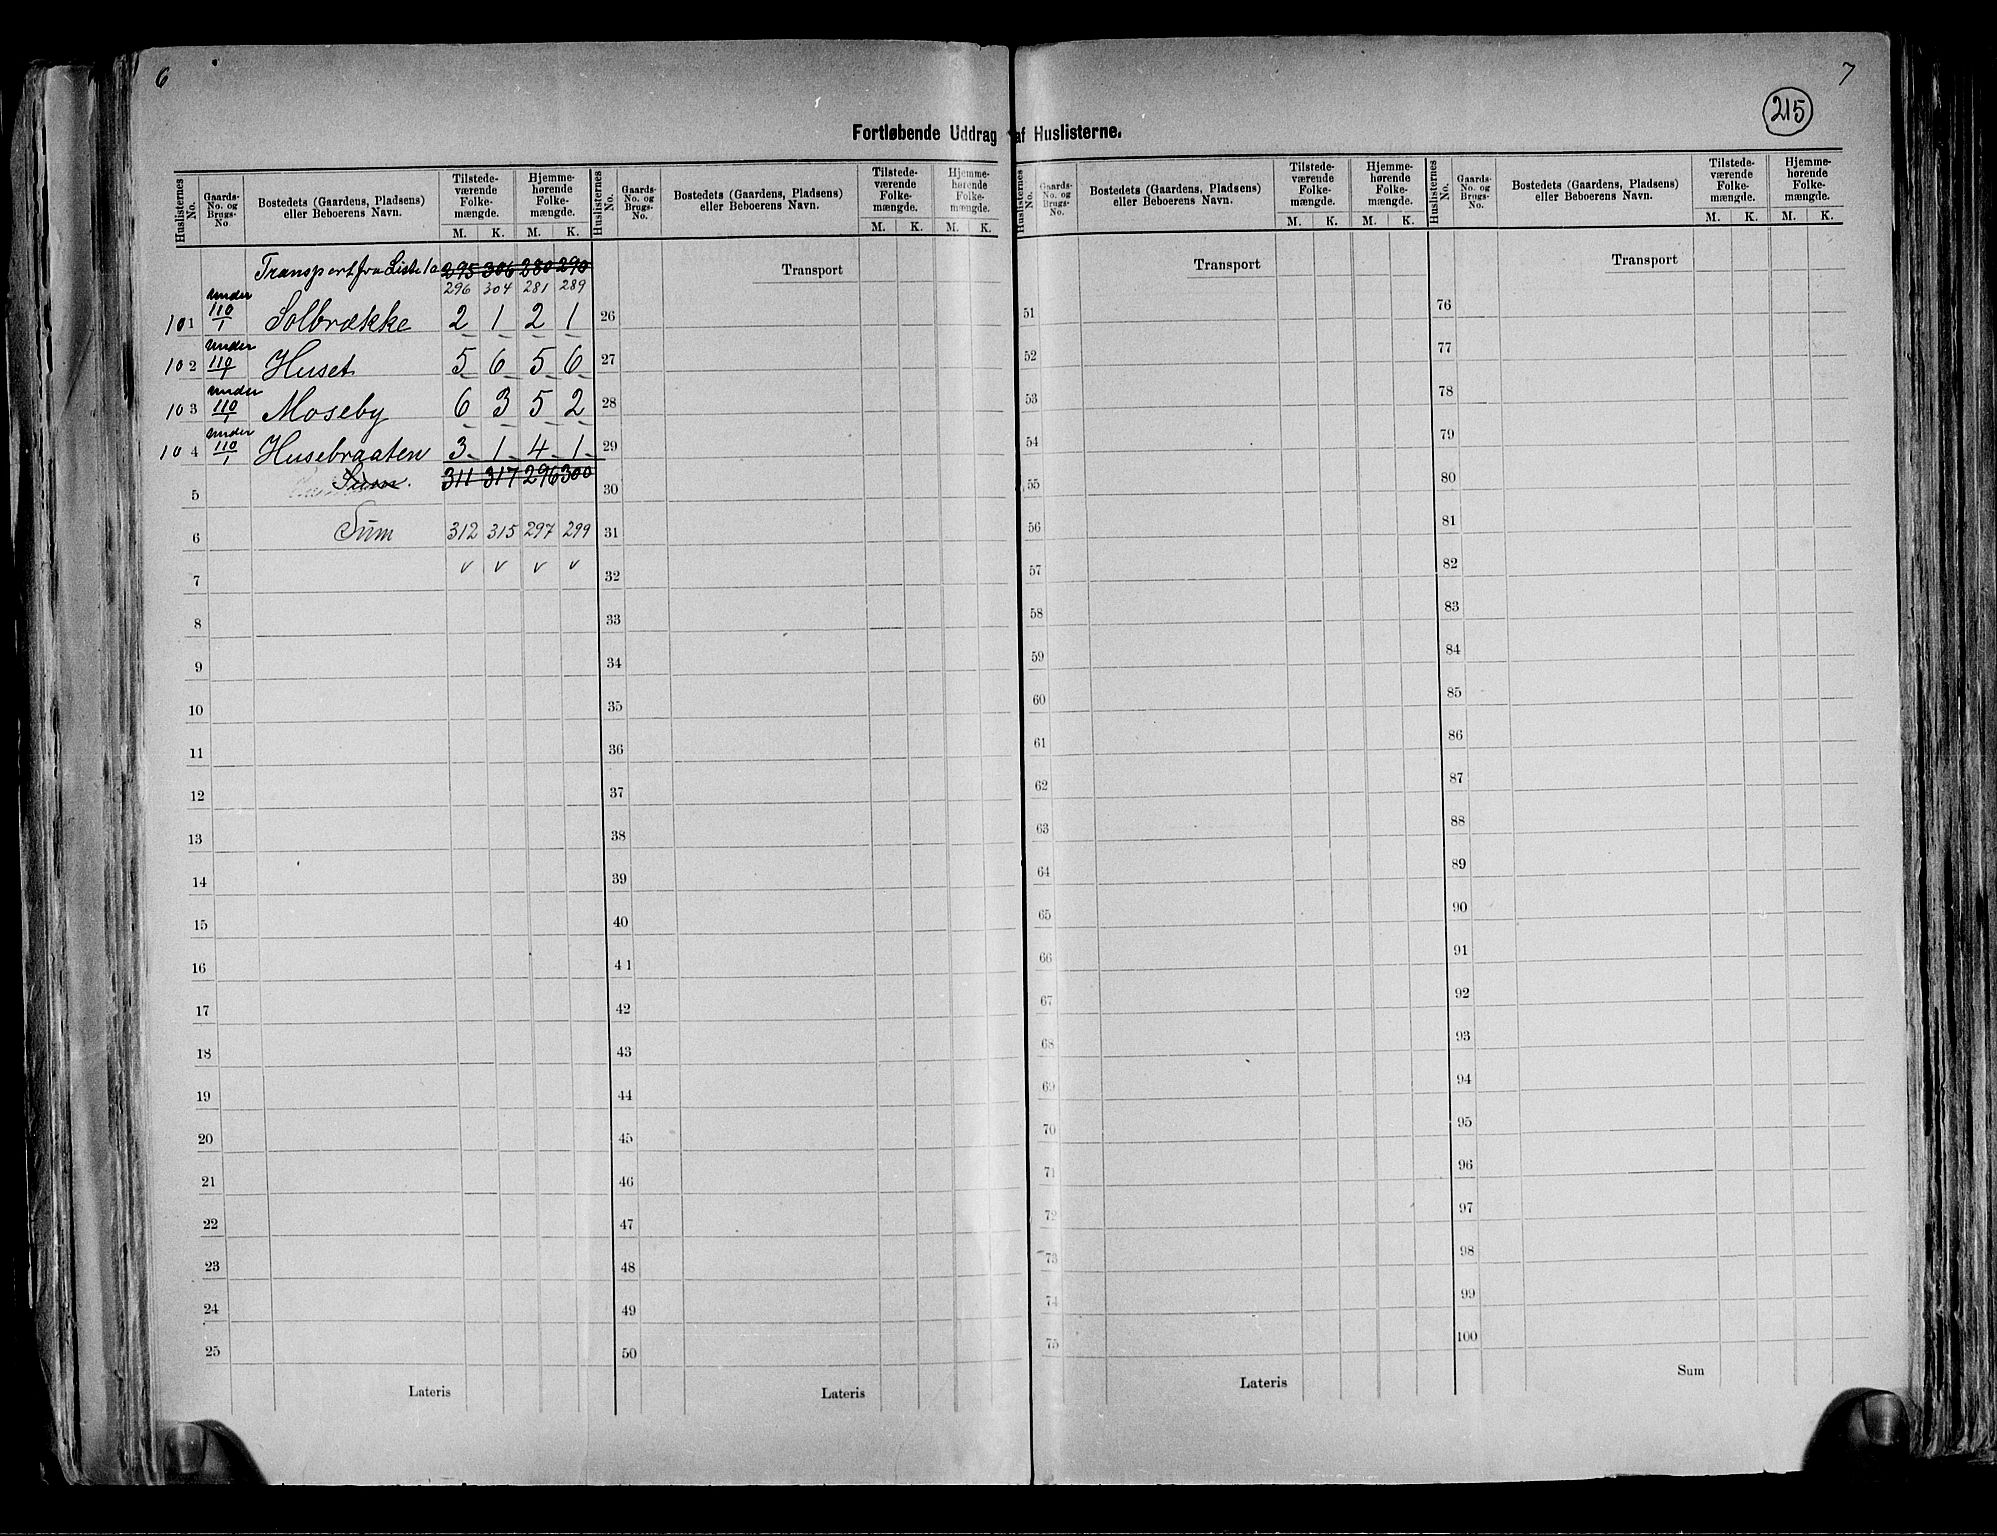 6
7
215
Fortløbende Uddrag af Huslisterne.
Huslisternes No. Gaards-No. og Brugs-No. Bostedets (Gaardens, Pladsens) eller Beboerens Navn. Tilstede-værende Folke-mængde. M. K. Hjemme-hørende Folke-mængde. M. K.
Transport fra Liste 1a 295 306 280 290
296 304 281 289
101 under 110/1 Solbrække 2 1 2 1
102 under 110/1 Huset 5 6 5 6
103 under 110/1 Moseby 6 3 5 2
104 under 110/1 Husebraaten 3 1 4 1
5 Sum. 311 317 296 300
6 Sum 312 315 297 299
7 v v v v
8
9
10
11
12
13
14
15
16
17
18
19
20
21
22
23
24
25
Lateris
Huslisternes No. Gaards-No. og Brugs-No. Bostedets (Gaardens, Pladsens) eller Beboerens Navn. Tilstede-værende Folke-mængde. M. K. Hjemme-hørende Folke-mængde. M. K.
Transport
26
27
28
29
30
31
32
33
34
35
36
37
38
39
40
41
42
43
44
45
46
47
48
49
50
Lateris
Huslisternes No. Gaards-No. og Brugs-No. Bostedets (Gaardens, Pladsens) eller Beboerens Navn. Tilstede-værende Folke-mængde. M. K. Hjemme-hørende Folke-mængde. M. K.
Transport
51
52
53
54
55
56
57
58
59
60
61
62
63
64
65
66
67
68
69
70
71
72
73
74
75
Lateris
Huslisternes No. Gaards-No. og Brugs-No. Bostedets (Gaardens, Pladsens) eller Beboerens Navn. Tilstede-værende Folke-mængde. M. K. Hjemme-hørende Folke-mængde. M. K.
Transport
76
77
78
79
80
81
82
83
84
85
86
87
88
89
90
91
92
93
94
95
96
97
98
99
100
Sum